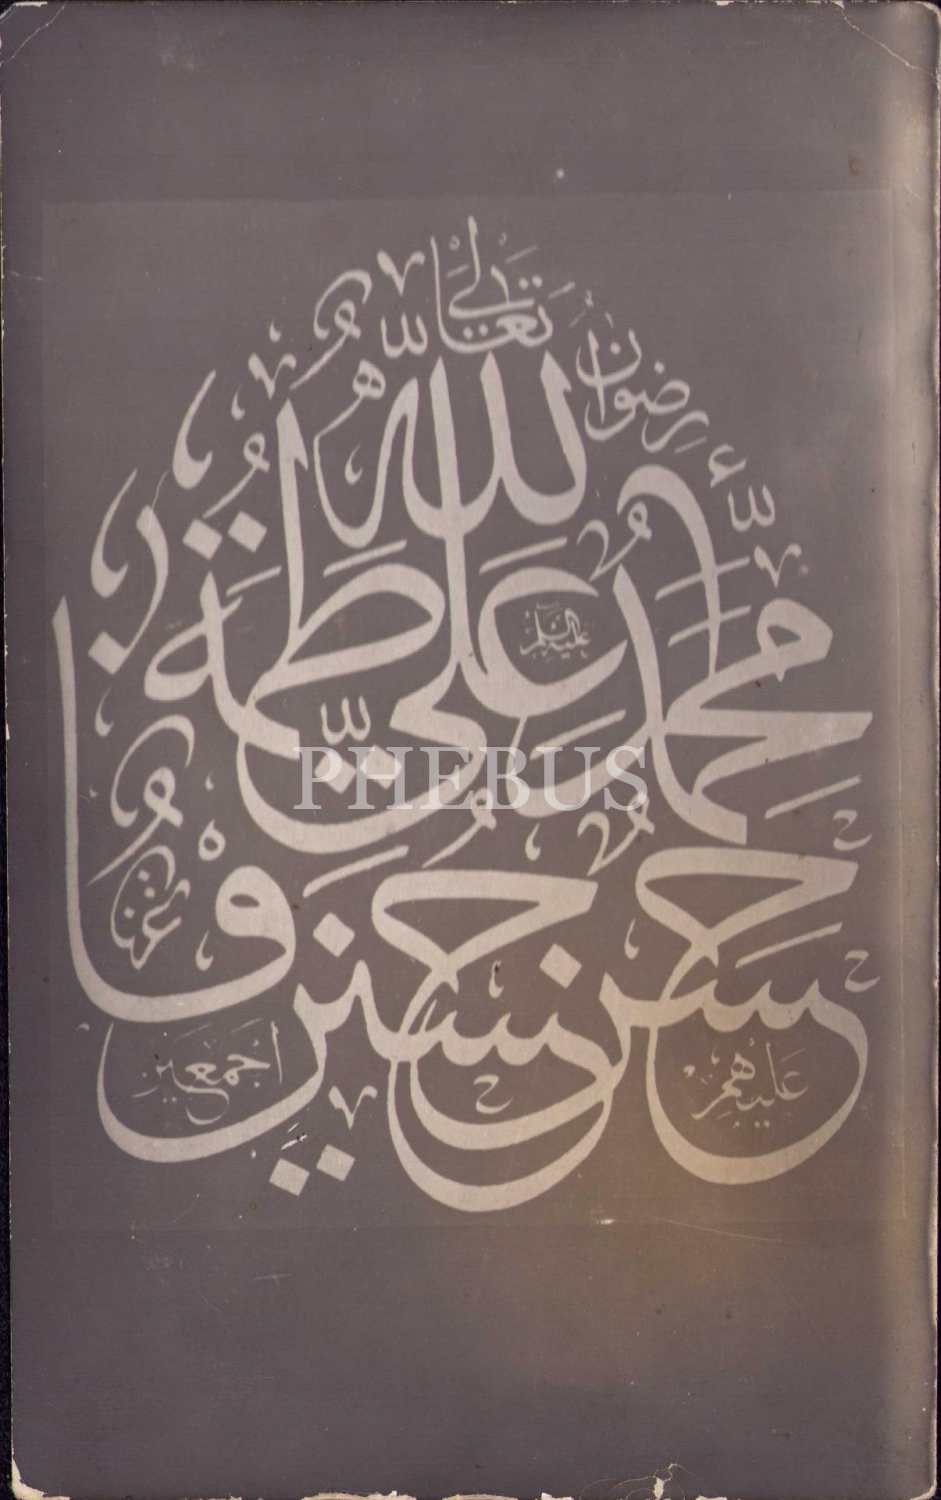 الله
محمد علي فاطمة
حسن حسين
رضوان الله تعالى عليهم اجمعين
عليه السلام
PHEBUS